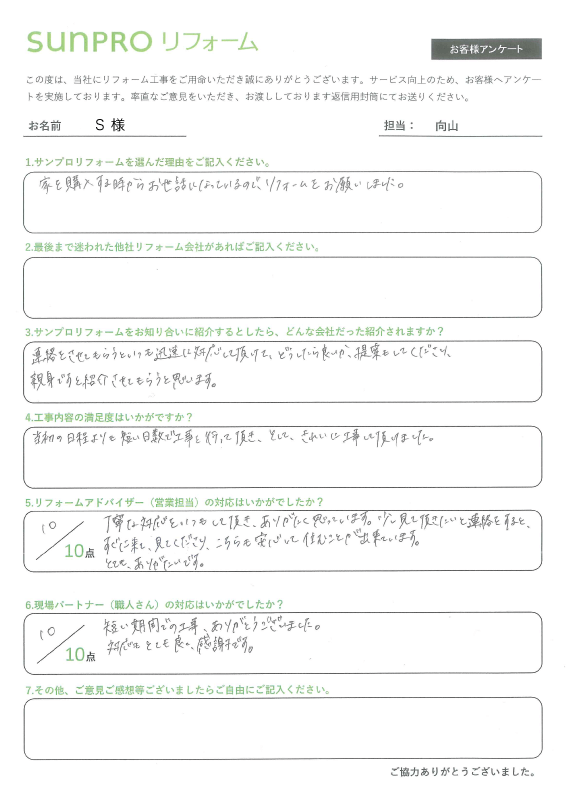 SUNPRO リフォーム
お客様アンケート
この度は、当社にリフォーム工事をご用命いただき誠にありがとうございます。サービス向上のため、お客様へアンケー
トを実施しております。率直なご意見をいただき、お渡ししております返信用封筒にてお送りください。
お名前 S 様 担当： 向山
1.サンプロリフォームを選んだ理由をご記入ください。
家を購入する時からお世話になっているので、リフォームをお願いしました。
2.最後まで迷われた他社リフォーム会社があればご記入ください。
3.サンプロリフォームをお知り合いに紹介するとしたら、どんな会社だった紹介されますか？
連絡をさせてもらうといつも迅速に対応して頂けて、どうしたら良いか、提案もしてくださり、
親身ですと紹介させてもらうと思います。
4.工事内容の満足度はいかがですか？
当初の日程よりも短い日数で工事を行って頂き、そして、きれいに工事して頂けました。
5.リフォームアドバイザー（営業担当）の対応はいかがでしたか？
10／10点
丁寧な対応をいつもして頂き、ありがたく思っています。少し見て頂きたいと連絡をすると、
すぐに来て、見てくださり、こちらも安心して住むことが出来ています。
とても、ありがたいです。
6.現場パートナー（職人さん）の対応はいかがでしたか？
10／10点
短い期間での工事、ありがとうございました。
対応もとても良く、感謝です。
7.その他、ご意見ご感想等ございましたらご自由にご記入ください。
ご協力ありがとうございました。